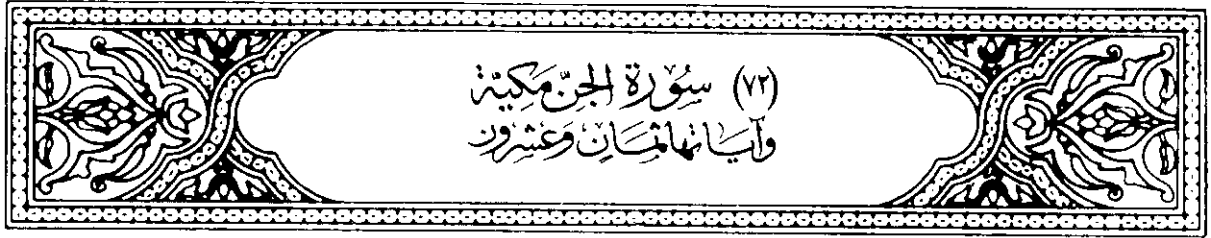 (٧٢) سُورَة الجنّ مَكيّة
وَآيَاتها ثمَان وَعشرون